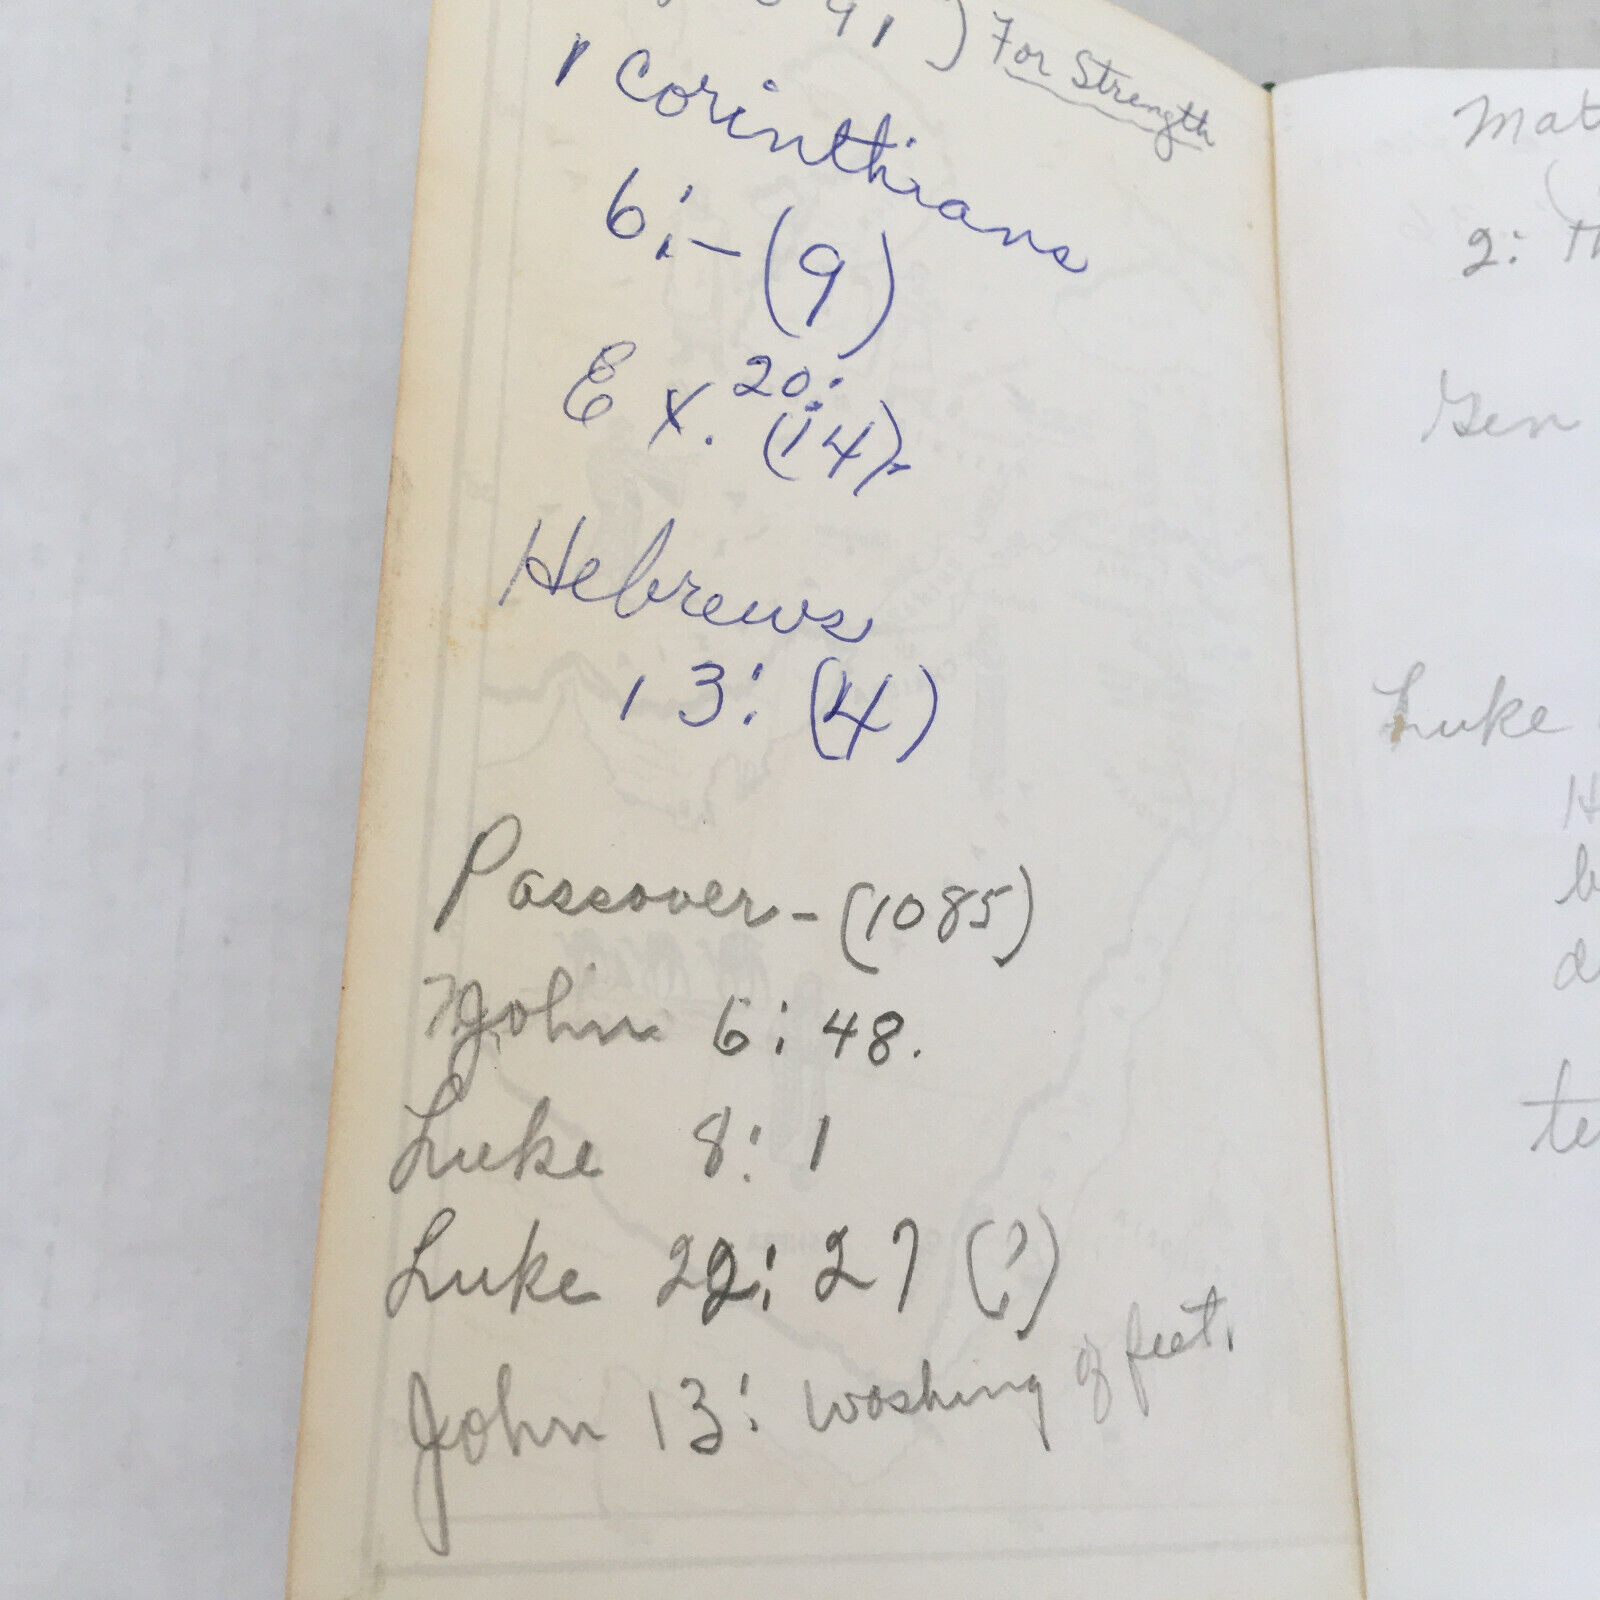 91) For Strength
1 Corinthians
6:-(9)
Ex. 20:
(14)
Hebrews
13: (4)
Passover - (1085)
John 6:48.
Luke 8:1
Luke 22:27 (?)
John 13: washing of feet.
Mat
2: th
Gen
Luke
H
b
d
te